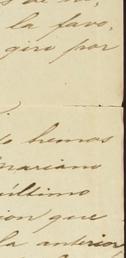 la favo,
giro por
hemos
Mariano
último
cion que
la anterior